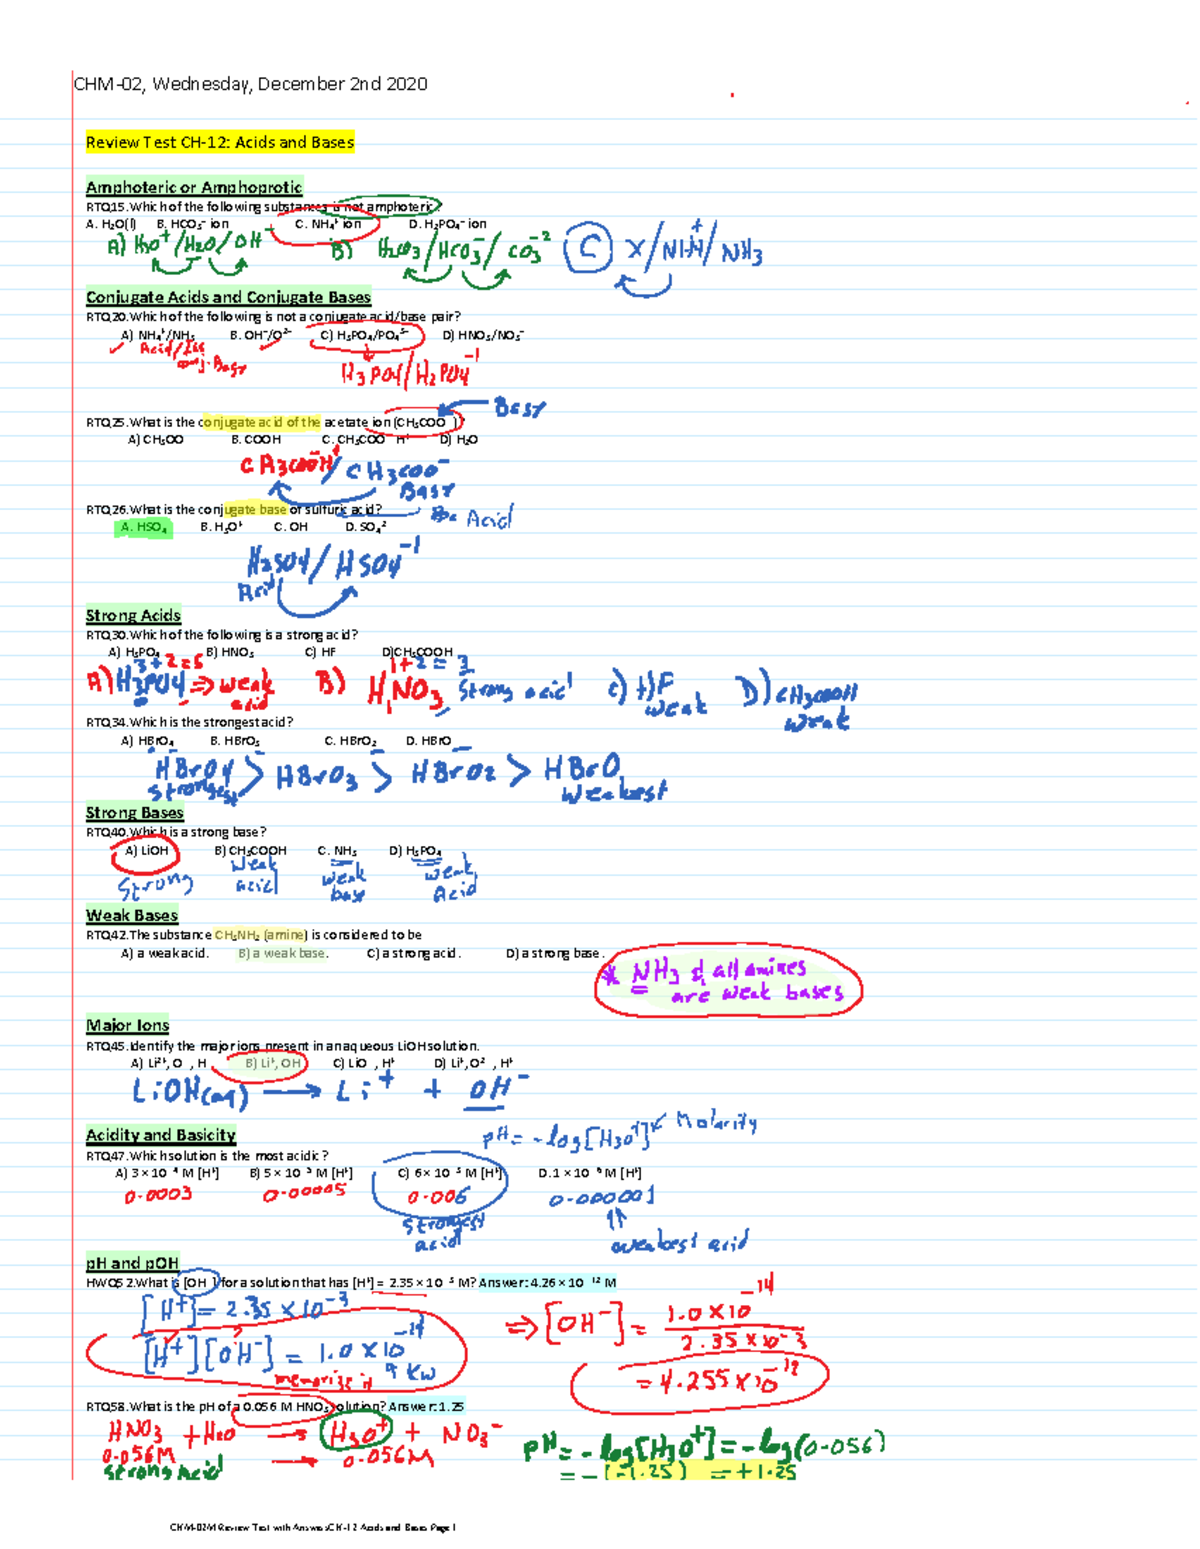 CHM-02, Wednesday, December 2nd 2020
Review Test CH-12: Acids and Bases
Amphoteric or Amphoprotic
RTQ15.Which of the following substances is not amphoteric.
A. H₂O(l) B. HCO₃⁻ ion C. NH₄⁺ ion D. H₂PO₄⁻ ion
A) H₃O⁺/H₂O/OH⁻ B) H₂CO₃/HCO₃⁻/CO₃⁻² C X/NH₄⁺/NH₃
Conjugate Acids and Conjugate Bases
RTQ20.Which of the following is not a conjugate acid/base pair?
A) NH₄⁺/NH₃ B. OH⁻/O²⁻ C) H₃PO₄/PO₄³⁻ D) HNO₃/NO₃⁻
Acid/its
conj. Base
H₃PO₄/H₂PO₄⁻¹
Base
RTQ25.What is the conjugate acid of the acetate ion (CH₃COO )?
A) CH₃OO B. COOH C. CH₃COO H⁺ D) H₂O
CH₃COOH/CH₃COO⁻
Base
RTQ26.What is the conjugate base of sulfuric acid?
Acid
A. HSO₄ B. H₃O⁺ C. OH D. SO₄²
H₂SO₄/HSO₄⁻¹
Acid
Strong Acids
RTQ30.Which of the following is a strong acid?
A) H₃PO₄ B) HNO₃ C) HF D)CH₃COOH
3+2=5 1+2=3
A) H₃PO₄ ⇒ weak acid B) HNO₃ strong acid C) HF weak D) CH₃COOH weak
RTQ34.Which is the strongest acid?
A) HBrO₄ B. HBrO₃ C. HBrO₂ D. HBrO
HBrO₄ > HBrO₃ > HBrO₂ > HBrO
Strongest Weakest
Strong Bases
RTQ40.Which is a strong base?
A) LiOH B) CH₃COOH C. NH₃ D) H₃PO₄
Strong Weak acid weak base weak Acid
Weak Bases
RTQ42.The substance CH₃NH₂ (amine) is considered to be
A) a weak acid. B) a weak base. C) a strong acid. D) a strong base.
* NH₃ & all amines
are weak bases
Major Ions
RTQ45.Identify the major ions present in an aqueous LiOH solution.
A) Li²⁺, O , H B) Li⁺, OH C) LiO , H⁺ D) Li⁺, O² , H⁺
LiOH(aq) → Li⁺ + OH⁻
Acidity and Basicity
pH = -log[H₃O⁺] ← Molarity
RTQ47.Which solution is the most acidic?
A) 3 × 10 ⁴ M [H⁺] B) 5 × 10 ⁵ M [H⁺] C) 6 × 10 ³ M [H⁺] D.1 × 10 ⁶ M [H⁺]
0.0003 0.00005 0.006 0.000001
strongest acid
weakest acid
pH and pOH
HWQ52.What is [OH ] for a solution that has [H⁺] = 2.35 × 10 ³ M? Answer: 4.26 × 10 ¹² M
[H⁺] = 2.35 × 10⁻³
[H⁺][OH⁻] = 1.0 × 10⁻¹⁴
memorize it Kw
⇒ [OH⁻] = 1.0 × 10⁻¹⁴
2.35 × 10⁻³
= 4.255 × 10⁻¹²
RTQ58.What is the pH of a 0.056 M HNO₃ solution? Answer: 1.25
HNO₃ + H₂O → H₃O⁺ + NO₃⁻
0.056M → 0.056M
Strong Acid
pH = -log[H₃O⁺] = -log(0.056)
= -(-1.25) = +1.25
CHM-02M Review Test with Answers CH-12 Acids and Bases Page 1